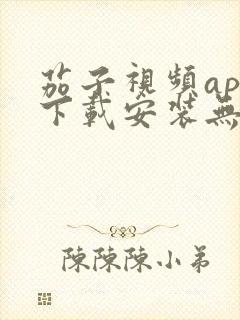 茄子視頻ap
下載安装無
陳陳陳小弟